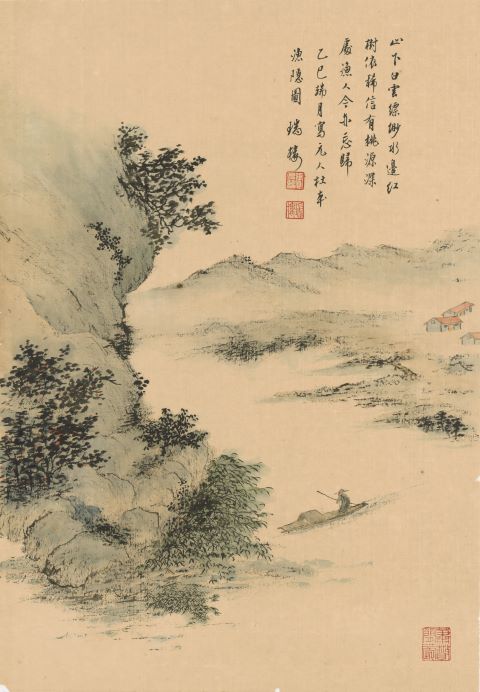 山下白雲縹緲水邊紅
樹依稀信有桃源深
處漁人今亦忘歸
乙巳瑞月寫元人杜本
漁隱圖 瑞樓